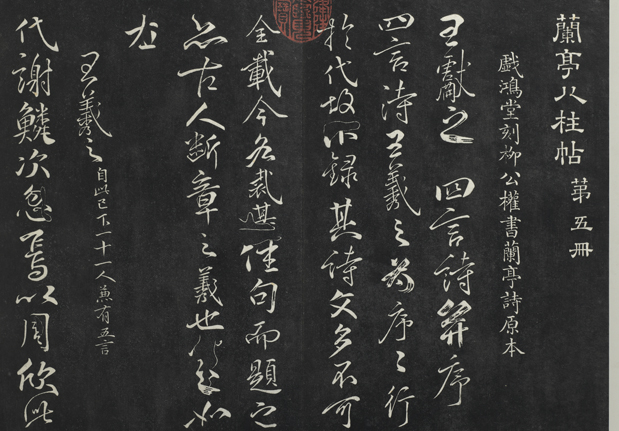 蘭亭八柱帖 第五冊
戲鴻堂刻柳公權書蘭亭詩原本
王獻之 四言詩并序
四言詩王羲之為序序行
於代故不録其詩文多不可
全載今各裁其佳句而題之
亦古人斷章之義也
左
王羲之 自此已下一十一人兼有五言
代謝鱗次忽焉以周欣此